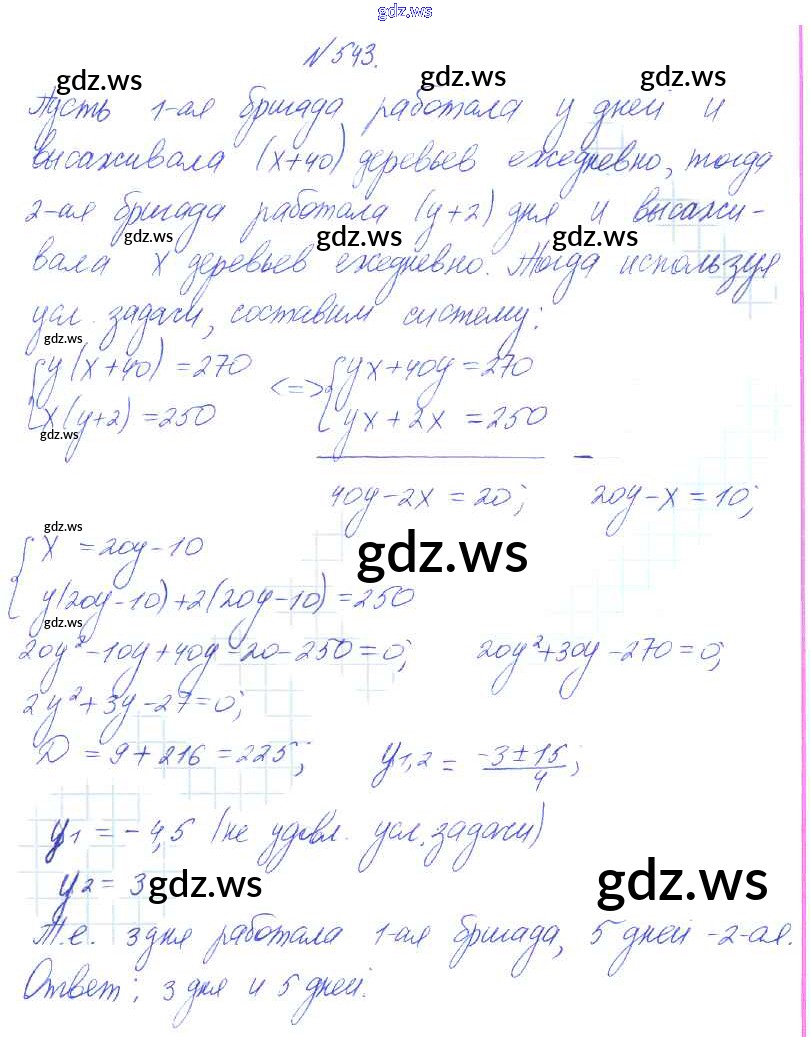 gdz.ws
N 543.
gdz.ws gdz.ws gdz.ws
Пусть 1-ая бригада работала y дней и
высаживала (x+40) деревьев ежедневно, тогда
2-ая бригада работала (y+2) дня и высажи-
gdz.ws gdz.ws gdz.ws
вала x деревьев ежедневно. Тогда используя
усл. задачи, составим систему:
gdz.ws
{ y(x+40) = 270 <=> { yx+40y = 270
x(y+2) = 250 yx + 2x = 250
gdz.ws
–
40y-2x = 20; 20y-x = 10;
gdz.ws
{ x = 20y-10
gdz.ws
y(20y-10)+2(20y-10) = 250
gdz.ws
20y²-10y+40y-20-250=0; 20y²+30y-270=0;
2y²+3y-27=0;
D = 9+216 = 225; y1,2 = -3±15/4;
y1 = -4,5 (не удовл. усл. задачи)
y2 = 3
gdz.ws gdz.ws
Т.е. 3 дня работала 1-ая бригада, 5 дней -2-ая.
Ответ: 3 дня и 5 дней.